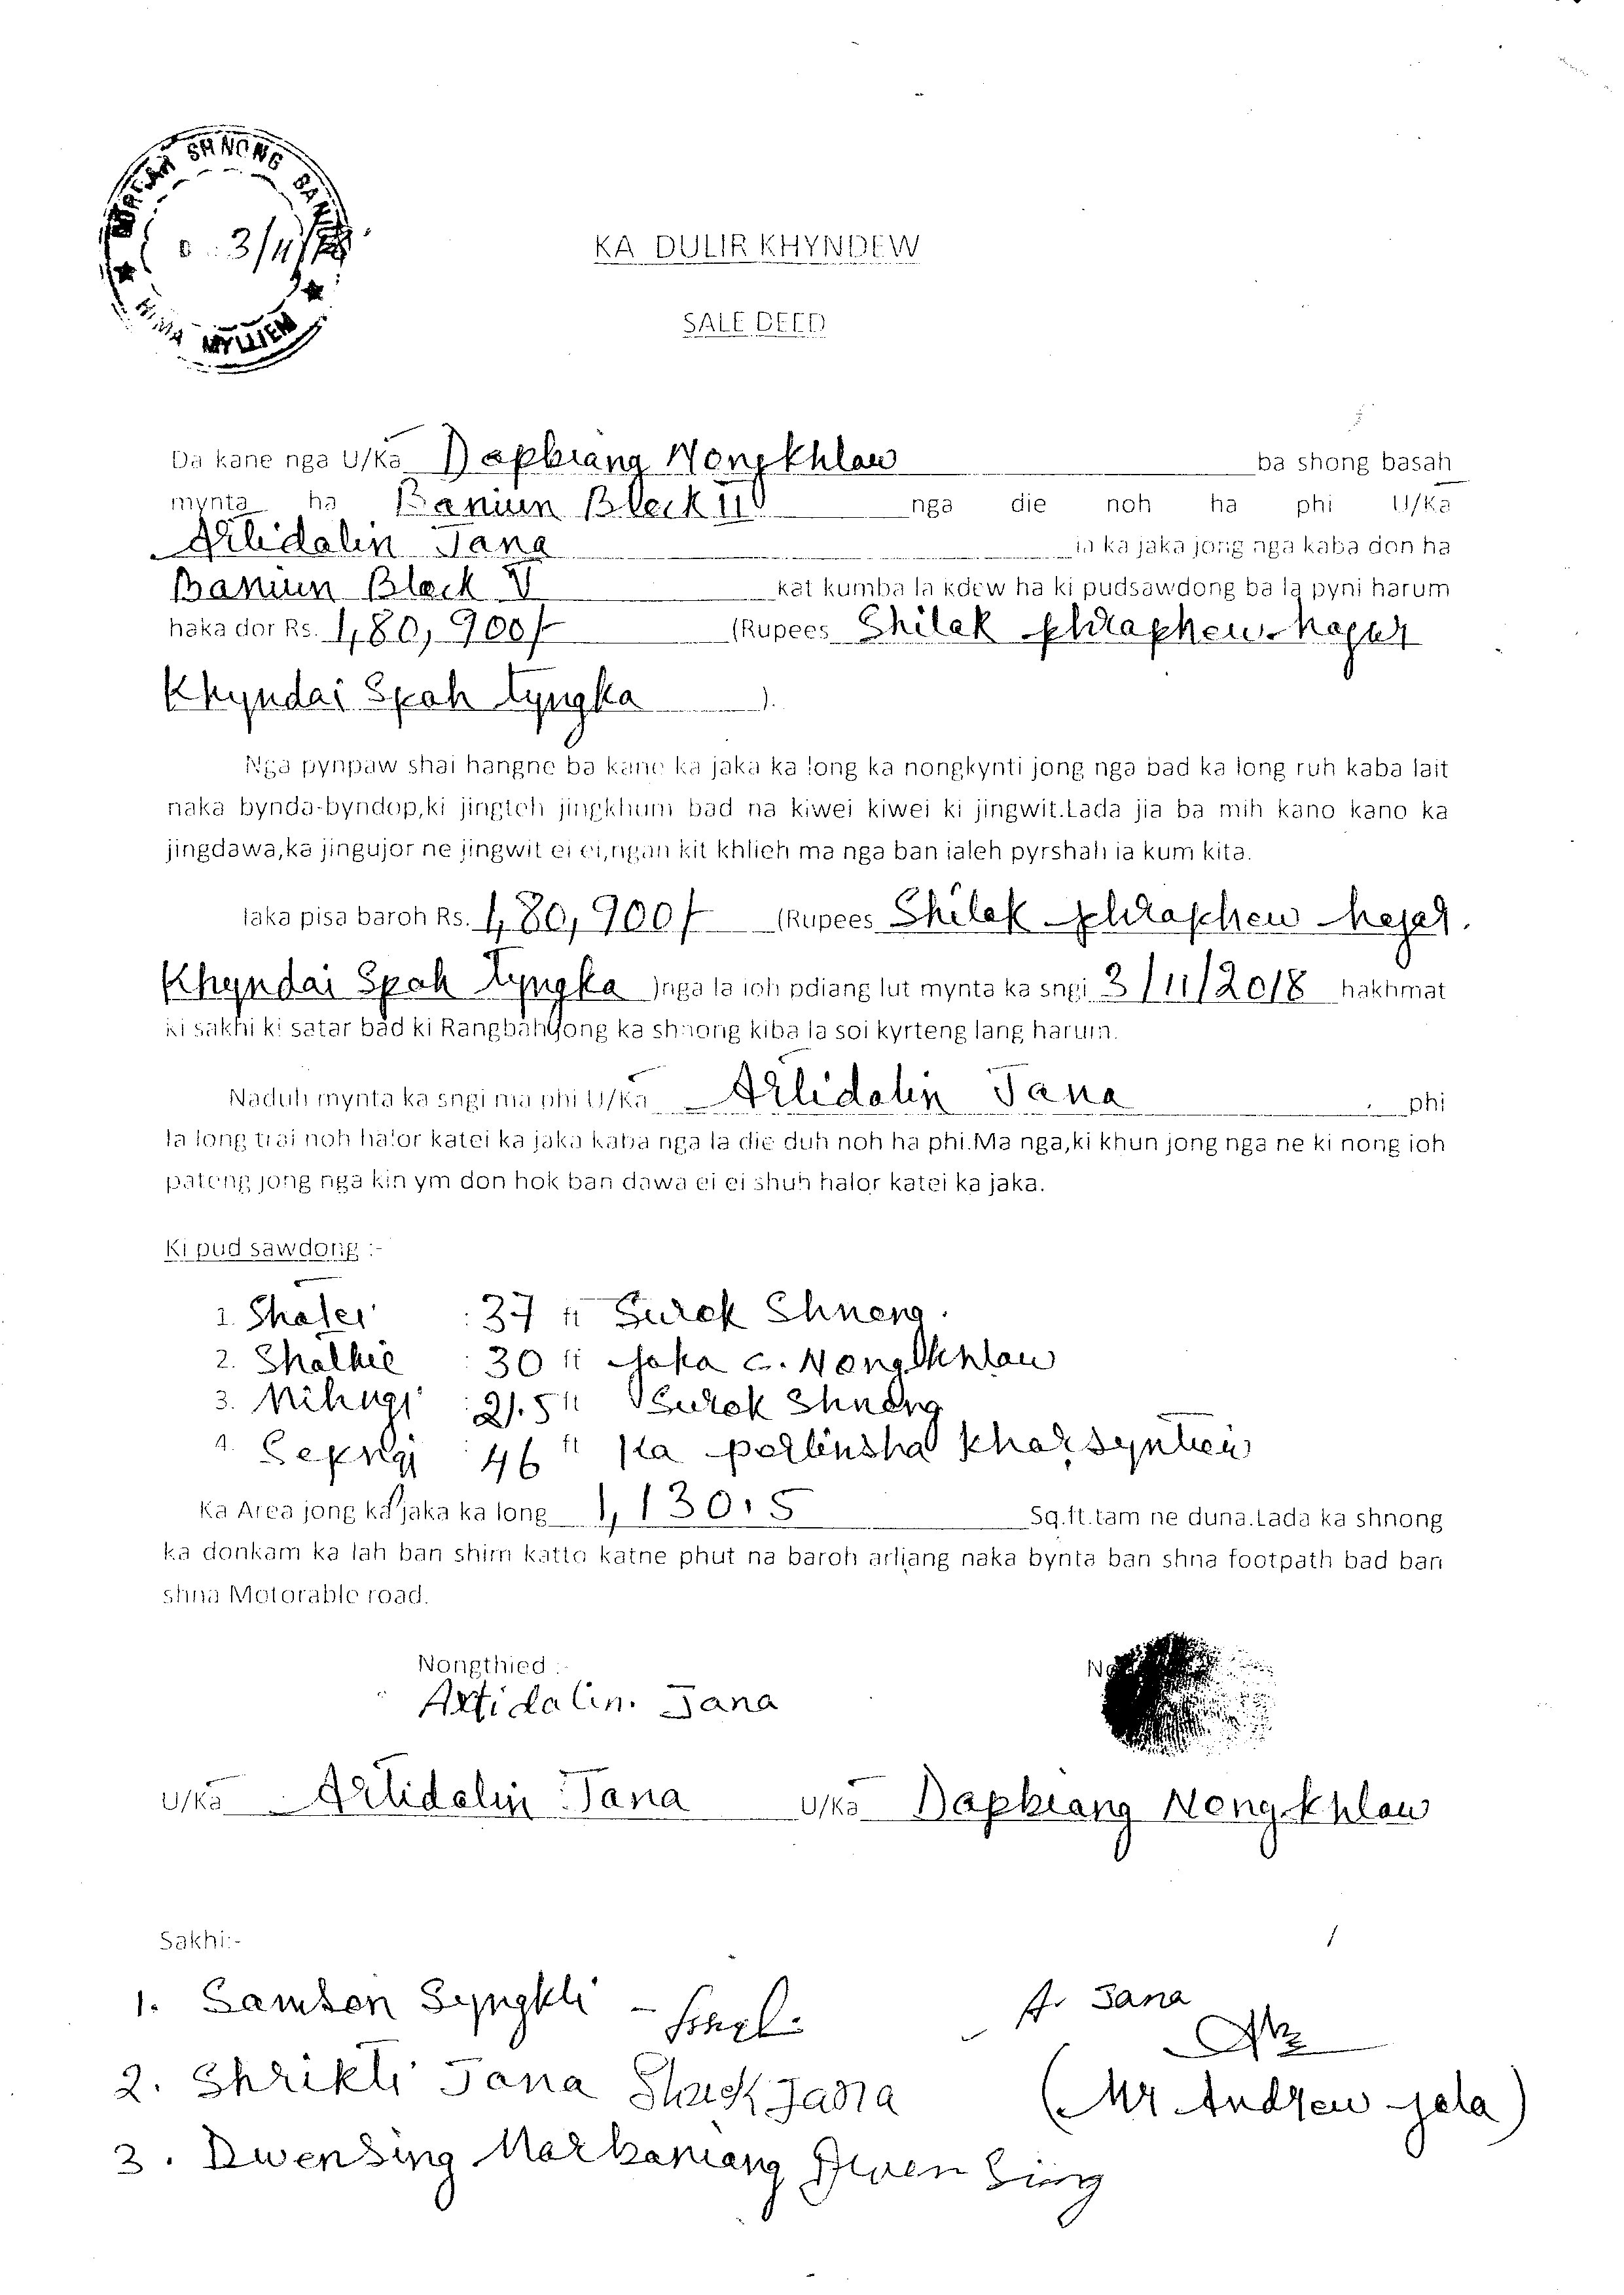 SHNONG
3/11/18
HIMA MYLLIEM
KA DULIR KHYNDEW
SALE DEED
Da kane nga U/Ka Dapbiang Nongkhlaw ba shong basah
mynta ha Baniun Block II nga die noh ha phi U/Ka
Artidalin Jana ia ka jaka jong nga kaba don ha
Baniun Block V kat kumba la kdew ha ki pudsawdong ba la pyni harum
haka dor Rs. 1,80,900/- (Rupees Shilak phraphew hajar
Khyndai Spah tyngka ).
Nga pynpaw shai hangne ba kane ka jaka ka long ka nongkynti jong nga bad ka long ruh kaba lait
naka bynda-byndop,ki jingteh jingkhum bad na kiwei kiwei ki jingwit.Lada jia ba mih kano kano ka
jingdawa,ka jingujor ne jingwit ei ei,ngan kit khlieh ma nga ban ialeh pyrshah ia kum kita.
Iaka pisa baroh Rs. 1,80,900/- (Rupees Shilak phraphew hajar.
Khyndai Spah tyngka )nga la ioh pdiang lut mynta ka sngi 3/11/2018 hakhmat
ki sakhi ki satar bad ki Rangbahjong ka shnong kiba la soi kyrteng lang harum.
Naduh mynta ka sngi ma phi U/Ka Artidalin Jana phi
la long trai noh halor katei ka jaka kaba nga la die duh noh ha phi.Ma nga,ki khun jong nga ne ki nong ioh
pateng jong nga kin ym don hok ban dawa ei ei shuh halor katei ka jaka.
Ki pud sawdong :-
1. Shatei : 37 ft Surok Shnong.
2. Shathie : 30 ft Jaka C. Nongkhlaw
3. Mihngi : 21.5 ft Surok Shnong
4. Sepngi : 46 ft Ka Porlinsha Kharsyntiew
Ka Area jong ka jaka ka long 1,130.5 Sq.ft.tam ne duna.Lada ka shnong
ka donkam ka lah ban shim katto katne phut na baroh arliang naka bynta ban shna footpath bad ban
shna Motorable road.
Nongthied :-
Artidalin. Jana
U/Ka Artidalin Jana U/Ka Dapbiang Nongkhlaw
Sakhi:-
1. Samson Syngkli -
A. Jana
2. Shrikti Jana Jana
(Mr Andrew Jala)
3. Dwensing Markaniang Dwensing